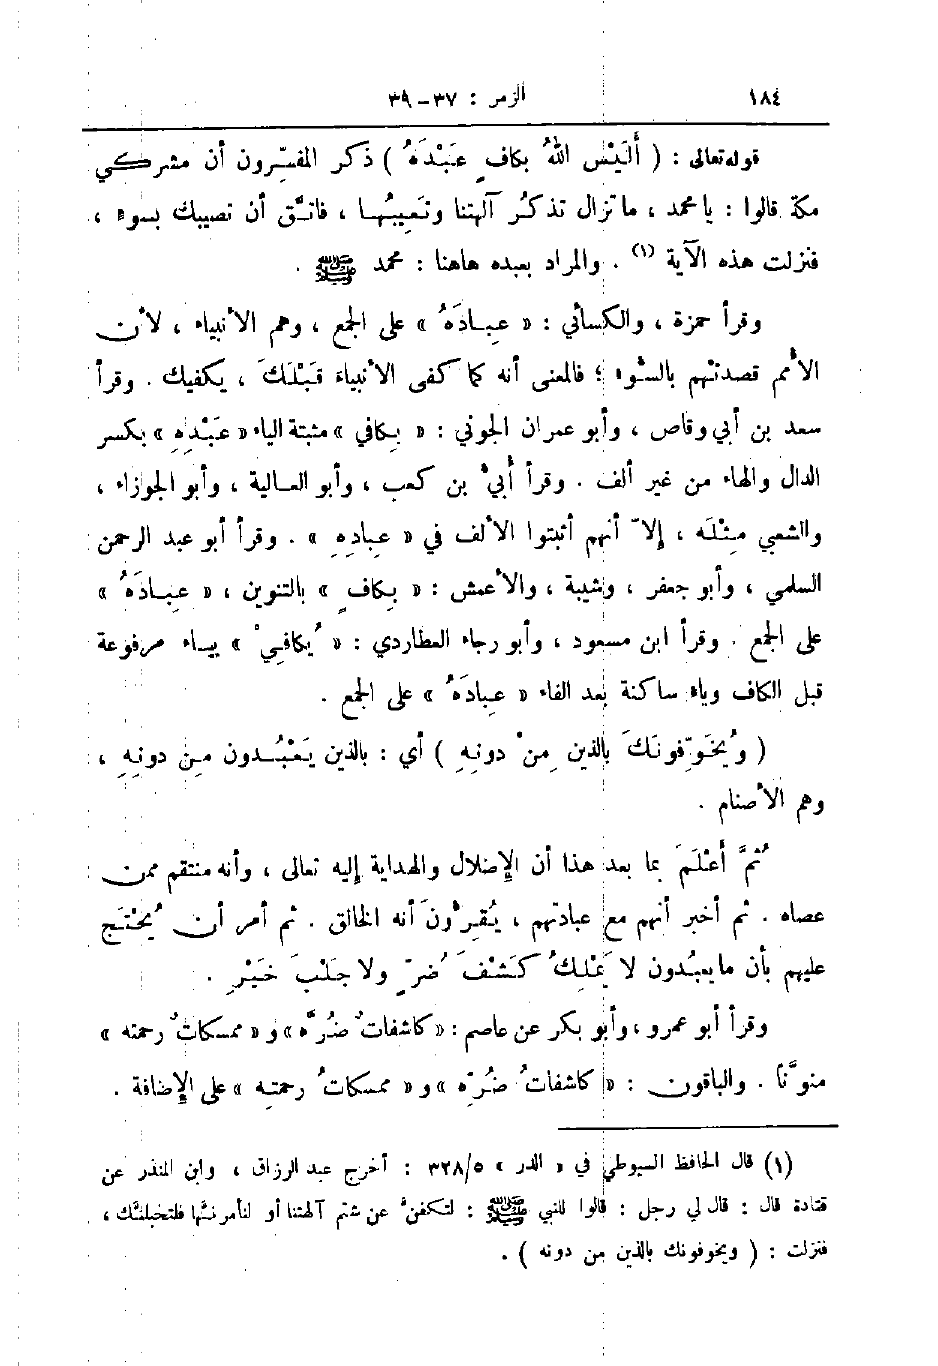 ١٨٤ الزمر : ٣٧ – ٣٩
قوله تعالى : ( أَلَيْسَ اللهُ بكافٍ عَبْدَهُ ) ذكر المفسّرون أن مشركي
مكة قالوا : يا محمد ، ما تزال تذكُر آلهتنا وتَعِيبُهـا ، فاتـَّق أن تصيبك بسوء ،
فنزلت هذه الآية (١) . والمراد بعبده هاهنا : محمد ﷺ .
وقرأ حمزة ، والكسائي : « عِبـادَهُ » على الجمع ، وهم الأنبياء ، لأن
الأُمم قصدتْهم بالسُّوء ؛ فالمعنى أنه كما كفى الأنبياءَ قَبْلَكَ ، يكفيك . وقرأ
سعد بن أبي وقاص ، وأبو عمران الجوني : « بِكافي » مثبتة الياء « عَبْدِهِ » بكسر
الدال والهاء من غير ألف . وقرأ أُبيُّ بن كعب ، وأبو العـالية ، وأبو الجوزاء ،
والشعبي مِثْلَه ، إلاّ أنهم أثبتوا الألف في « عِبادِهِ » . وقرأ أبو عبد الرحمن
السلمي ، وأبو جعفر ، وشيبة ، والأعمش : « بِكافٍ » بالتنوين ، « عِبـادَهُ »
على الجمع . وقرأ ابن مسعود ، وأبو رجاء العطاردي : « يُكافـِيْ » بيـاء مرفوعة
قبل الكاف وياء ساكنة بعد الفاء « عِبادَهُ » على الجمع .
( ويُخَوِّفونَكَ بالذين مِنْ دونِهِ ) أي : بالذين يَعْبُـدون مِن دونِهِ ،
وهم الأصنام .
ثُمَّ أَعْلَمَ بما بعد هذا أن الإِضلال والهداية إليه تعالى ، وأنه منتقم ممن
عصاه . ثم أخبر أنهم مع عبادتهم ، يُقِرُّونَ أنه الخالق . ثم أمر أن يُحْتَجَّ
عليهم بأن ما يعبُدون لا يَمْلِكُ كَشْفَ ضُرٍّ ولا جَلْبَ خَيْرٍ .
وقرأ أبو عمرو ، وأبو بكر عن عاصم : « كاشفاتٌ ضُرَّه » و « ممسكاتٌ رحمته »
منوَّناً . والباقون : « كاشفاتُ ضُرِّه » و « ممسكاتُ رحمتِه » على الإِضافة .
(١) قال الحافظ السيوطي في « الدر » ٣٢٨/٥ : أخرج عبد الرزاق ، وابن المنذر عن
قتادة قال : قال لي رجل : قالوا للنبي ﷺ : لتكفنَّ عن شتم آلهتنا أو لنأمرنـَّها فلتخبلنـَّك ،
فنزلت : ( ويخوفونك بالذين من دونه ) .